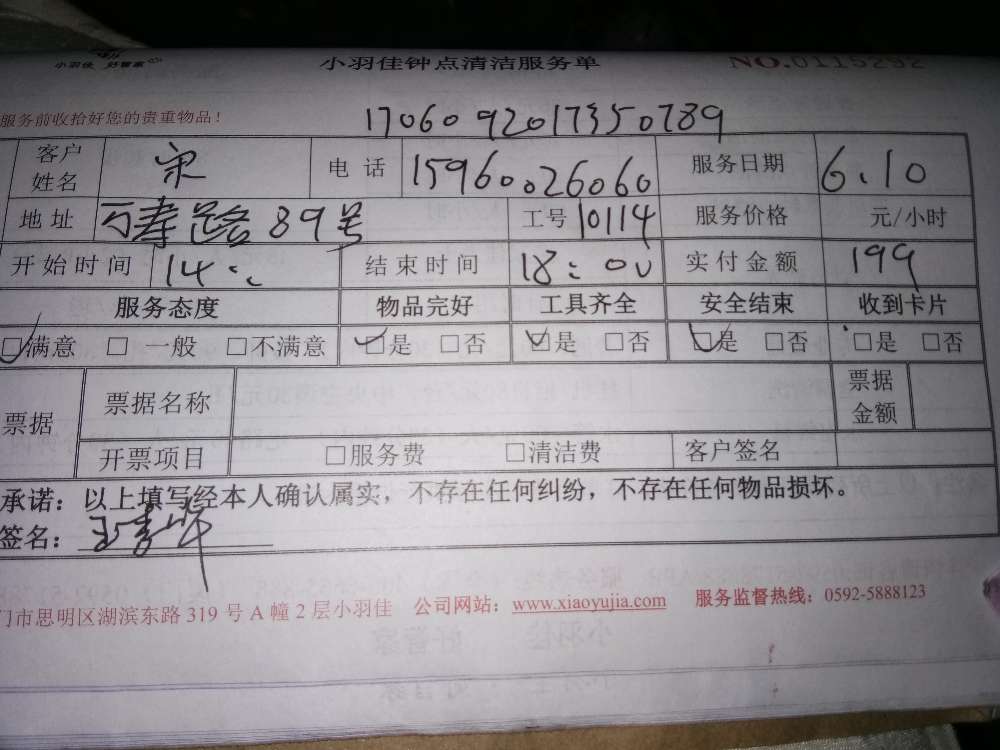 小羽佳 好管家
小羽佳钟点清洁服务单 NO.0115292
服务前收拾好您的贵重物品!
1706092017350789
客户姓名 宋 电话 15960026060 服务日期 6.10
地址 万寿路89号 工号 10114 服务价格 元/小时
开始时间 14:: 结束时间 18:00 实付金额 199
服务态度 物品完好 工具齐全 安全结束 收到卡片
☑满意 □ 一般 □不满意 ☑是 □否 ☑是 □否 ☑是 □否 □是 □否
票据 票据名称 票据金额
开票项目 □服务费 □清洁费 客户签名
承诺:以上填写经本人确认属实,不存在任何纠纷,不存在任何物品损坏。
签名:
门市思明区湖滨东路 319 号 A 幢 2 层小羽佳 公司网站:www.xiaoyujia.com 服务监督热线:0592-5888123